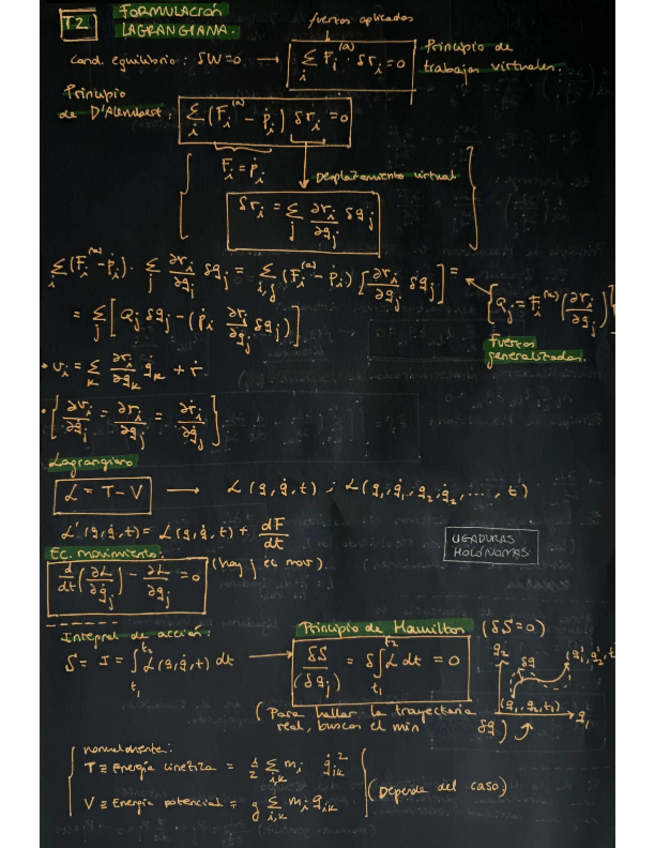 T2 FORMULACIÓN LAGRANGIANA.
fuerzas aplicadas
Cond. equilibrio: δW=0 → Σ_i F_i^(a) · δr_i = 0 Principio de trabajos virtuales.
Principio de D'Alembert: Σ_i (F_i^(a) - ṗ_i) δr_i = 0
F_i = ṗ_i
Desplazamiento virtual
δr_i = Σ_j ∂r_i/∂q_j δq_j
Σ_i (F_i^(a) - ṗ_i) · Σ_j ∂r_i/∂q_j δq_j = Σ_{i,j} (F_i^(a) - ṗ_i) [∂r_i/∂q_j δq_j] =
= Σ_j [Q_j δq_j - (ṗ_i ∂r_i/∂q_j δq_j)]
{Q_j = F_i^(a) (∂r_i/∂q_j)}
Fuerzas generalizadas.
• v_i = Σ_k ∂r_i/∂q_k q̇_k + ṙ
• [∂v_i/∂q̇_j = ∂r_i/∂q_j = ∂ṙ_i/∂q̇_j]
Lagrangiano
L = T - V → L(q, q̇, t) ; L(q_1, q̇_1, q_2, q̇_2, ..., t)
L'(q, q̇, t) = L(q, q̇, t) + dF/dt
LIGADURAS HOLÓNOMAS
Ec. movimiento:
d/dt (∂L/∂q̇_j) - ∂L/∂q_j = 0 (hay j ec mov).
Integral de acción:
S = I = ∫_{t_1}^{t_2} L(q, q̇, t) dt →
Principio de Hamilton (δS=0)
δS/(δq_j) = δ∫_{t_1}^{t_2} L dt = 0
q_2 δq
(q_1, q_2, t_1) q_1
(Para hallar la trayectoria real, buscas el min δq)
normalmente:
T ≡ Energía cinética = 1/2 Σ_{i,k} m_i q̇_{ik}^2
V ≡ Energía potencial = g Σ_{i,k} m_i q_{ik}
(Depende del caso)